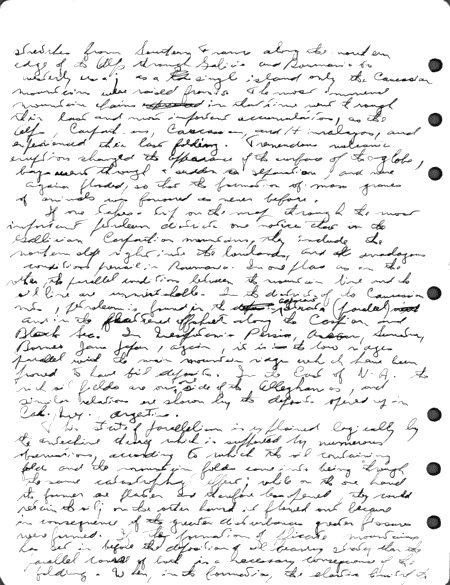 stretches from Southern France along the northern
edge of the Alps through Galicia and Roumania to
as a single island only the Caucasian
mountains were raised from it. The most immense
mountain chains in that time went through
their last and most important accumulations, as the
Alps, Carpath., Caucasus, and Himalayas, and
experienced their last folding. Tremendous volcanic
eruptions changed the appearance of the surface of the globe,
bays went through a sudden separation, and were
again flooded, so that the formation of mass graves
of animals was favored as never before.
If one takes a trip on the map through the most
important petroleum districts one notices that in the
Gallician Carpathian mountains, they include the
northern slope right into the lowlands, and the analogous
conditions prevail in Roumania. In one place as on the
other the parallel conditions between the mountain line and the
oil line are unmistakable. In the district of the Caucasian
mts., petroleum is found in the strata (parallel)
and in the along the Caspian and
Black Sea. In Persia, Sumatra,
Borneo, Java, Japan, again it is the low ridges
parallel with the main mountain ridge which have been
proved to have oil deposits. In the East of N.A. the
rich oil fields are on side of the Alleghanies, and
similar relations are shown by the deposits opened up in
Cal., argentine.
This fact of parallelism is explained logically by
the anticline theory which is supported by numerous
observations, according to which the oil containing
folds and the mountain folds came into being through
the same catastrophic effect; while on the one hand
the former are flatter and therefore less opened, they could
retain the oil; on the other hand it flowed out because
in consequence of the greater disturbance greater fissures
were formed. If the formation of mountains
has set in before the deposition of oil bearing strata then the
parallel course of both is a necessary consequence of the
folding. in its formation, the